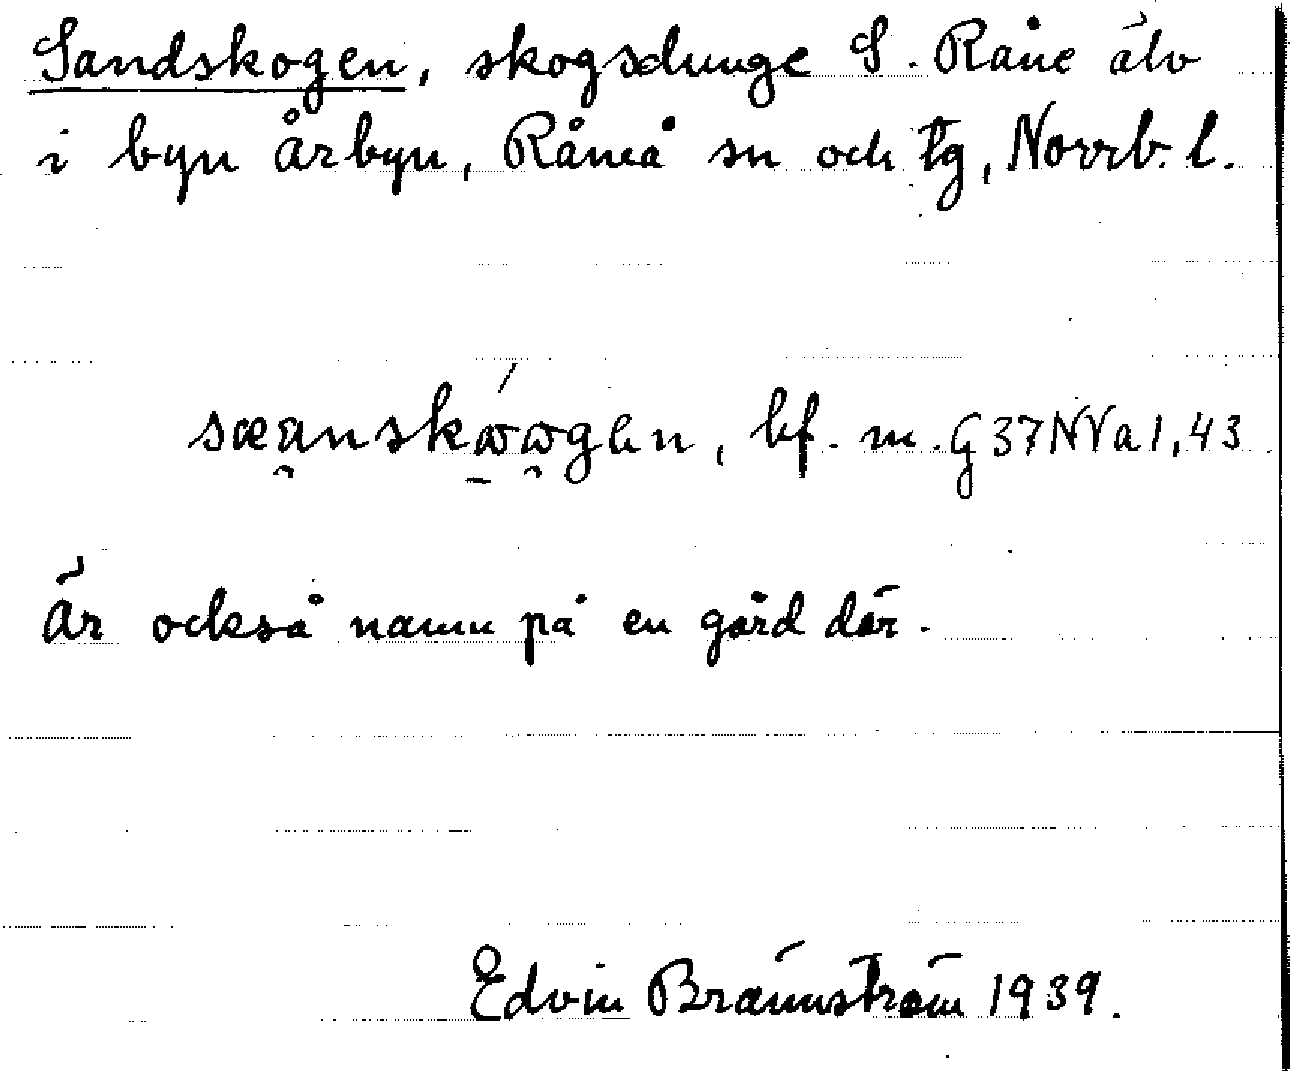 Sandskogen, skogsdunge S. Råne älv
i byn Årbyn, Råneå sn och tg, Norrb. l.
sæa̯nskɷ̀́ɷ̯gən, bf. m. G37NVa1,43
Är också namn på en gård där.
Edvin Brännström 1939.